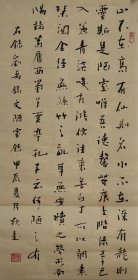 山不在高有仙則名水不在深有龍
則靈斯是陋室惟吾德馨苔痕上階綠草色
入簾青談笑有鴻儒往來無白丁可以調素
琴閱金經無絲竹之亂耳無案牘之勞形南
陽諸葛廬西蜀子雲亭孔子云何陋之有
右錄劉禹錫文陋室銘甲辰夏月